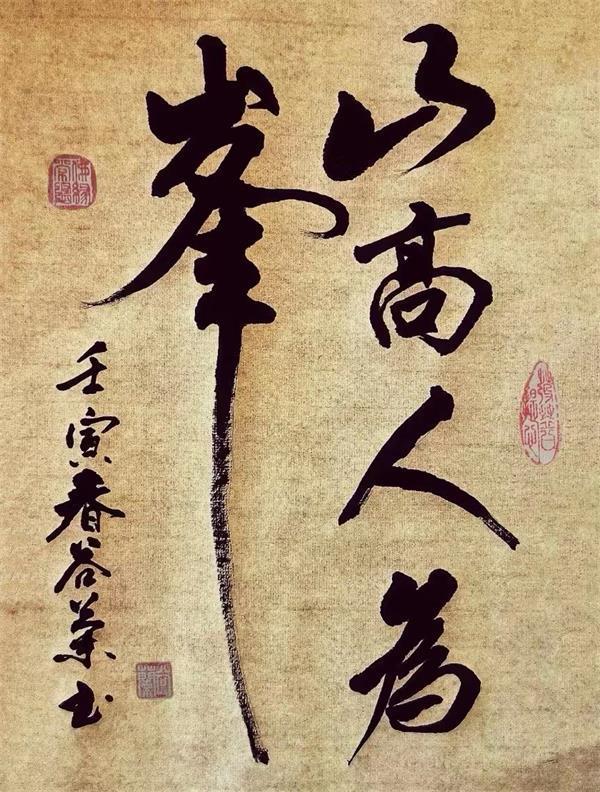 山高人為
峯
壬寅春谷葉书